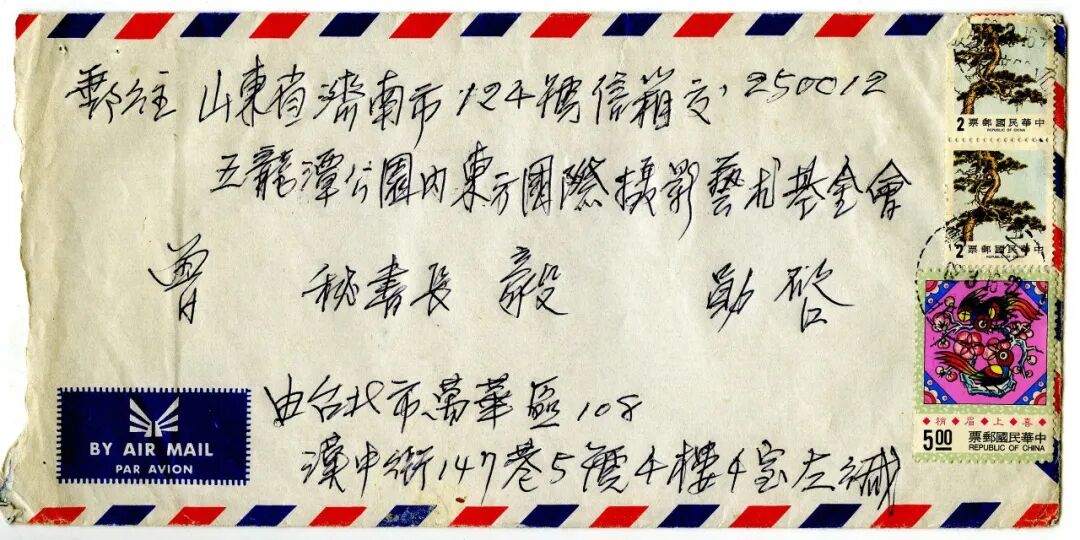 郵往 山東省濟南市124號信箱交,250012
五龍潭公園內東方國際攝影藝术基金會
曾 秘書長 毅 勛啓
由台北市萬華區108
漢中街147巷5號4樓4室左緘
BY AIR MAIL
PAR AVION
2 票郵國民華中
REPUBLIC OF CHINA
2 票郵國民華中
REPUBLIC OF CHINA
梢眉上喜
5.00 票郵國民華中
REPUBLIC OF CHINA